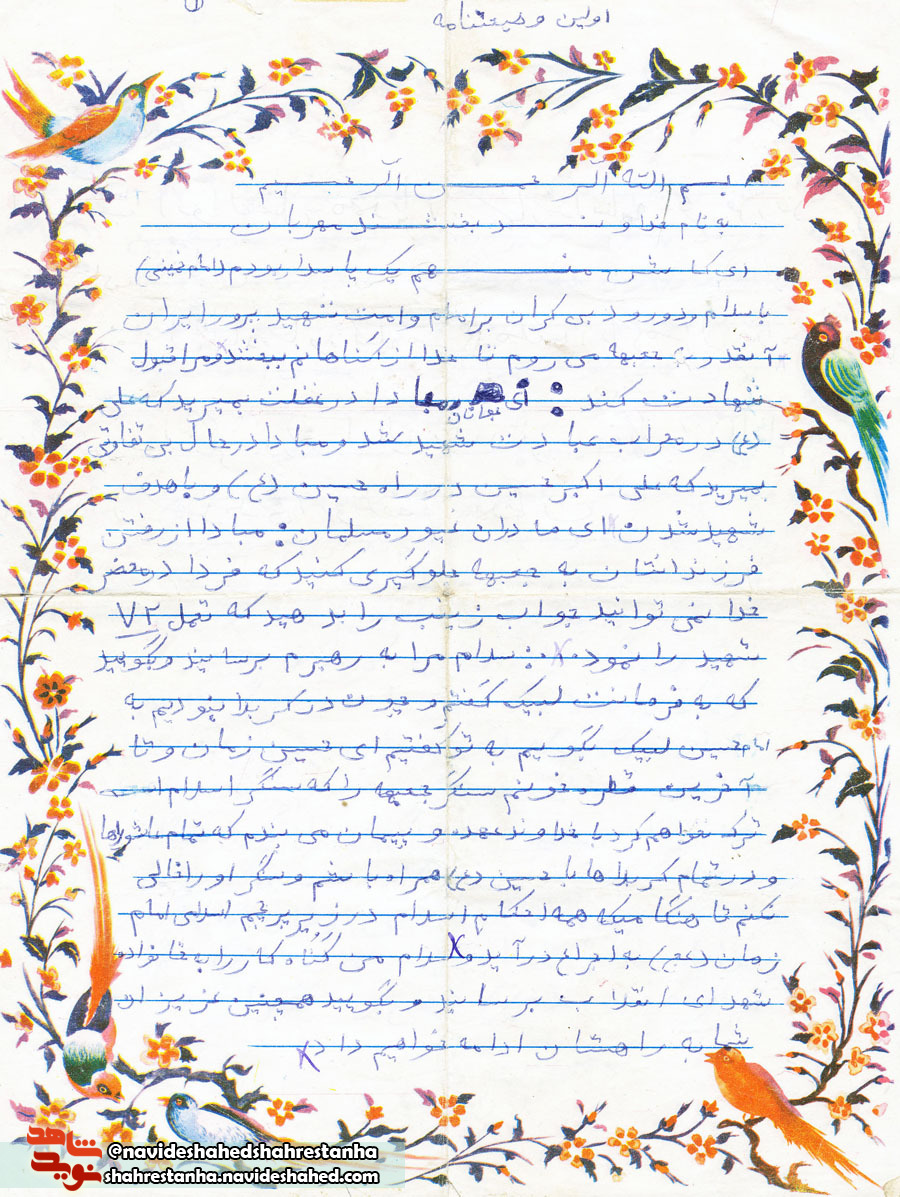 ①
اولین وصیتنامه
بسم الله الرحمن الرحیم
به نام خداوند بخشنده مهربان
ای کاش من هم یک پاسدار بودم (امام خمینی)
با سلام و درود بی کران بر امام و امت شهید پرور ایران
آنقدر به جبهه می روم تا خدا از گناهانم ببخشد و مرا قبول
شهادت کند : ای جوانان مبادا در غفلت بمیرید که علی
(ع) در محراب عبادت شهید شد و مبادا در حال بی تفاوتی
بمیرید که علی اکبر حسین در راه حسین (ع) و با هدف
شهید شدن : ای مادران غیور مسلمان : مبادا از رفتن
فرزندانتان به جبهه جلوگیری کنید که فردا در محضر
خدا نمی توانید جواب زینب را بدهید که تحمل ۷۲
شهید را نمود : سلام مرا به رهبرم برسانید و بگویید
که به فرمانت لبیک گفتم و چون در کربلا نبودیم به
امام حسین لبیک بگوییم به تو گفتیم ای حسین زمان و تا
آخرین قطره خونم سنگر جبهه را که سنگر اسلام است
ترک نخواهم کرد با خداوند عهد و پیمان می بندم که تمام عاشوراها
و در تمام کربلاها با حسین (ع) همراه باشم و سنگر او را خالی
نکنم تا هنگامیکه همه احکام اسلام در زیر پرچم اسلامی امام
زمان (عج) به اجراء در آید و سلام من گناه کار را به خانواده
شهدای انقلاب برسانید و بگویید همچنین عزیزان
شما به راهشان ادامه خواهیم داد
شاهد
نوید
@navideshahedshahrestanha
shahrestanha.navideshahed.com